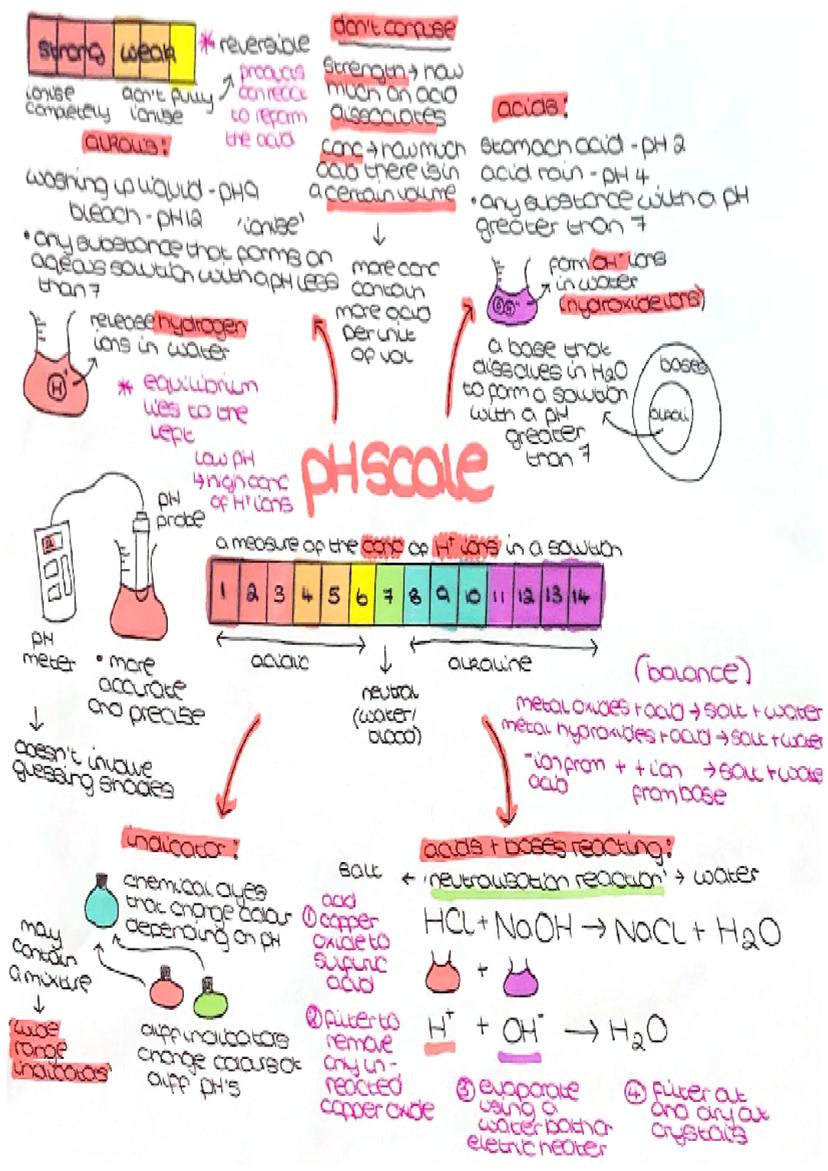 strong weak
* reversible
products
can react
to reform
the acid
ionise
completely
don't fully
ionise
don't confuse
strength → how
much an acid
dissociates
conc → how much
acid there is in
a certain volume
more conc
contain
more acid
per unit
of vol
alkalis:
washing up liquid - pH9
bleach - pH12
'ionise'
• any substance that forms an
aqeous solution with a pH less
than 7
release hydrogen
ions in water
H+
* equilibrium
lies to the
left
low pH
↳ high conc
of H+ ions
acids:
stomach acid - pH 2
acid rain - pH 4
• any substance with a pH
greater than 7
form OH- ions
in water
(hydroxide ions)
a base that
dissolves in H2O
to form a solution
with a pH
greater
than 7
bases
alkali
pH scale
a measure of the conc of H+ ions in a solution
1 2 3 4 5 6 7 8 9 10 11 12 13 14
acidic
neutral
(water/
blood)
alkaline
pH
probe
pH
meter
• more
accurate
and precise
doesn't involve
guessing shades
(balance)
metal oxides + acid → salt + water
metal hydroxides + acid → salt + water
- ion from + + ion → salt + wate
acid from base
indicator:
chemical dyes
that change colour
depending on pH
may
contain
a mixture
wide
range
indicators
diff indicators
change colours at
diff pH's
acids + bases reacting:
salt ← 'neutralisation reaction' → water
HCl + NaOH → NaCl + H2O
+
H+ + OH- → H2O
acid
① copper
oxide to
sulfuric
acid
② filter to
remove
any un-
reacted
copper oxide
③ evaporate
using a
water bath or
eletric heater
④ filter out
and dry out
crystals